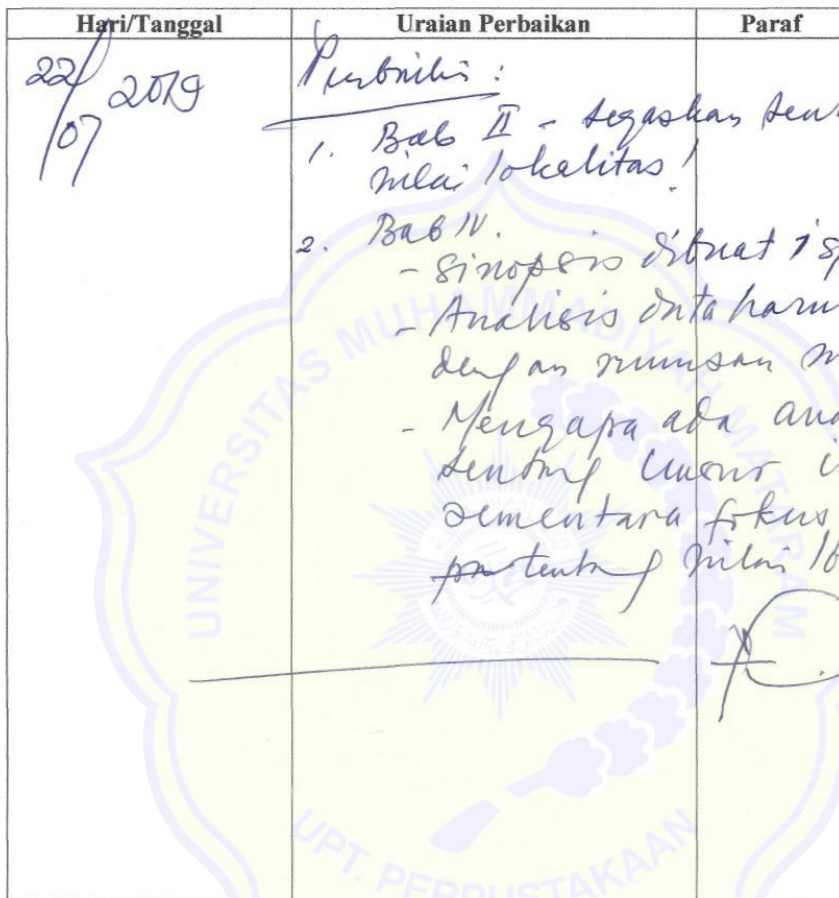 Hari/Tanggal Uraian Perbaikan Paraf
22/07 2019
Perbaiki :
1. Bab II - tegaskan ten
nilai lokalitas!
2. Bab IV.
- Sinopsis dibuat 1 sp
- Analisis data haru
dengan rumusan m
- Mengapa ada ana
tentang unsur i
sementara fokus
tentang nilai lo
UNIVERSITAS MUHAMMADIYAH MATARAM
UPT. PERPUSTAKAAN